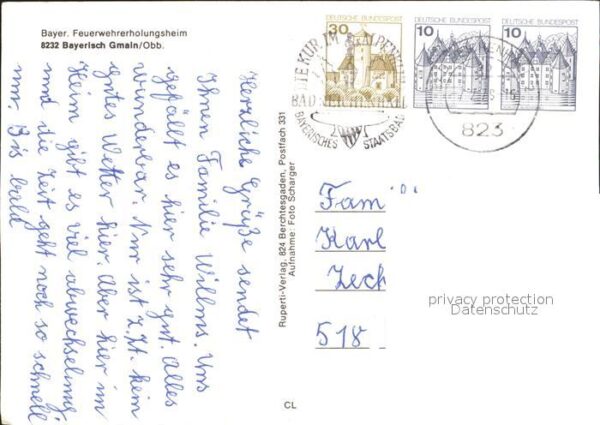 Bayer. Feuerwehrerholungsheim
8232 Bayerisch Gmain/Obb.
Herzliche Grüße sendet
Ihnen Familie Willms. Uns
gefällt es hier sehr gut. Alles
wunderbar. Nur ist z.Zt. kein
gutes Wetter hier. Aber hier im
Heim gibt es viel abwechselung
und die Zeit geht noch so schnell
um. Bis bald
Ruperti-Verlag, 824 Berchtesgaden, Postfach 331
Aufnahme: Foto Scharger
CL
30
DEUTSCHE BUNDESPOST
10
DEUTSCHE BUNDESPOST
10
DEUTSCHE BUNDESPOST
DIE KUR IM ALPENPARK
BAD
BAYERISCHES STAATSBAD
823
Fam
Karl
Zech
518
privacy protection
Datenschutz